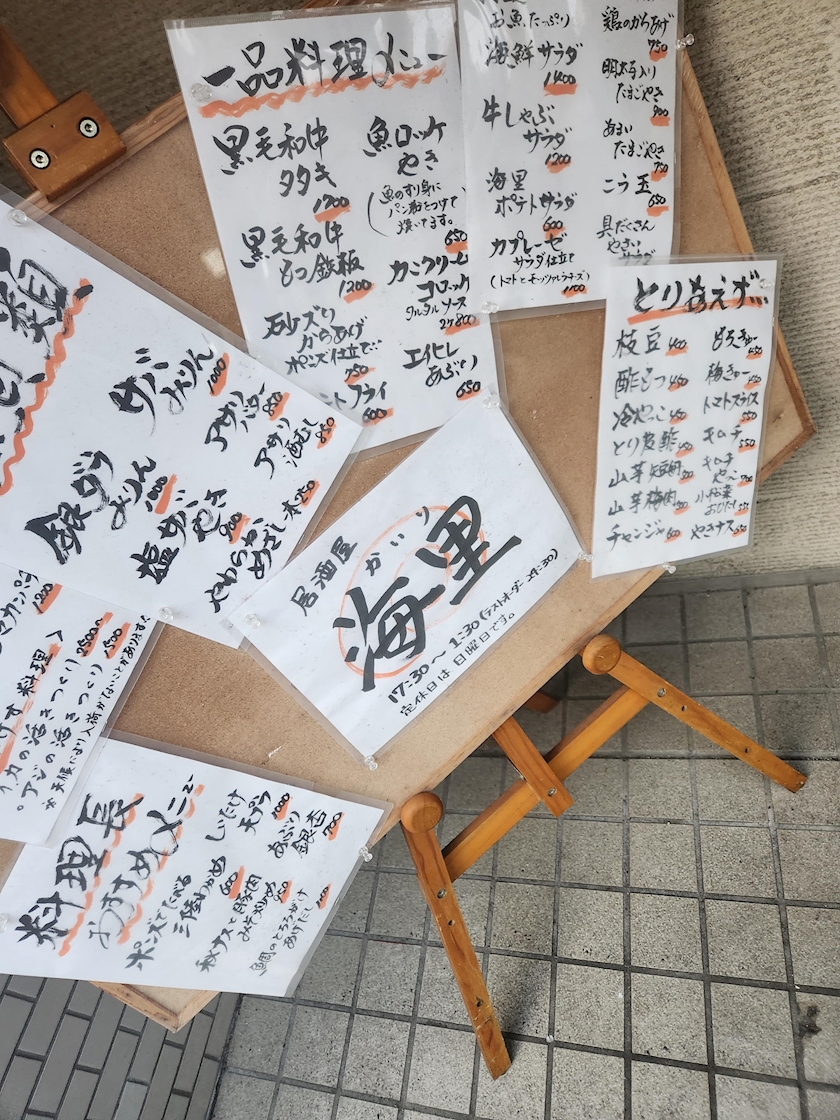 一品料理メニュー
黒毛和牛
タタキ
1200
黒毛和牛
もつ鉄板
1200
砂ズリ
からあげ
ポンズ仕立て
750
フライ
600
魚ロッケ
やき
(魚のすり身に
パン粉をつけて
焼いてます。)
650
カニクリーム
コロッケ
タルタルソース
2ケ800
エイヒレ
あぶり
650
お魚たっぷり
海鮮サラダ
1400
牛しゃぶ
サラダ
1200
海里
ポテトサラダ
600
カプレーゼ
サラダ仕立て
(トマトとモッツァレラチーズ)
1100
鶏のからあげ
750
明太子入り
たまごやき
900
あまい
たまごやき
750
こう玉
650
具だくさん
やさい
サラダ
とりあえず...
枝豆 400
酢もつ 450
冷やっこ 450
とり皮酢
山芋短冊
山芋梅肉
チャンジャ 600
もろきゅー 450
梅きゅー 450
トマトスライス
550
キムチ
550
キムチ
やっこ
小松菜
おひたし
やきナス
類
サバ
みりん
1000
アサリ
バター
850
アサリ
酒むし
850
銀ダラ
みりん
1000
塩サバやき
900
やわらか
めざし 一本 250
居酒屋
かいり
海里
17:30〜1:30(ラストオーダー24:30)
定休日は日曜日です。
1200
料理>
イカの活きつくり 2500〜
アジの活きつくり 1500
※天候により入荷がないことがあります。
料理長
おすすめメニュー
ポンズでたべる
三陸わかめ
600
秋ナスと豚肉
みそ炒め
950
鯛のとろろがけ
あげだし
しいたけ
天プラ
1000
あぶり
銀杏
700